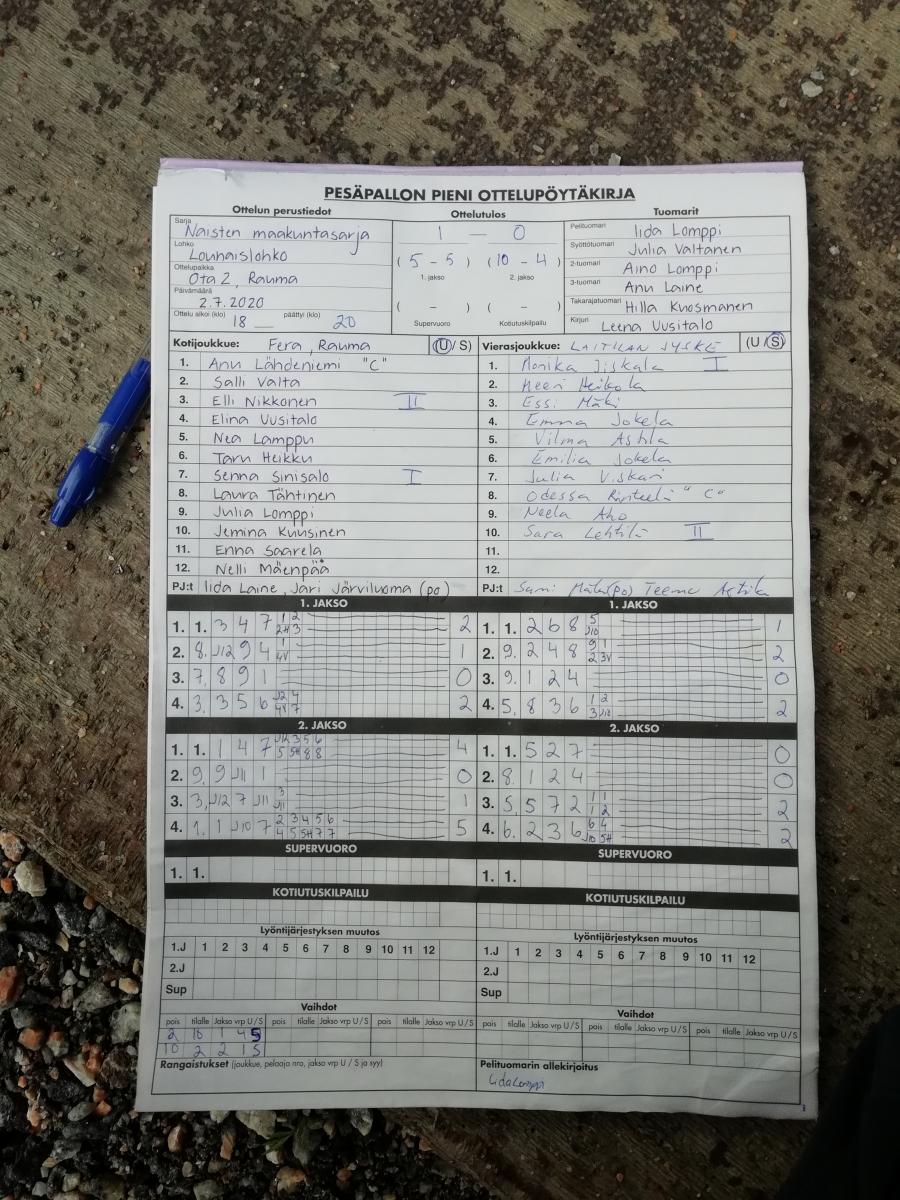 PESÄPALLON PIENI OTTELUPÖYTÄKIRJA
Ottelun perustiedot Ottelutulos Tuomarit
Sarja Naisten maakuntasarja
Lohko Lounaislohko
Ottelupaikka Ota 2, Rauma
Päivämäärä 2.7.2020
Ottelu alkoi (klo) 18 päättyi (klo) 20
1 — 0
(5 - 5) (10 - 4)
1. jakso 2. jakso
( - ) ( - )
Supervuoro Kotiutuskilpailu
Pelituomari Iida Lomppi
Syöttötuomari Julia Valtanen
2-tuomari Aino Lomppi
3-tuomari Anu Laine
Takarajatuomari Hilla Kuosmanen
Kirjuri Leena Uusitalo
Kotijoukkue: Fera, Rauma (U / S)
1. Anu Lähdeniemi "C"
2. Salli Valta
3. Elli Nikkonen II
4. Elina Uusitalo
5. Nea Lamppu
6. Taru Heikku
7. Senna Sinisalo I
8. Laura Tähtinen
9. Julia Lomppi
10. Jemina Kuusinen
11. Enna Saarela
12. Nelli Mäenpää
PJ:t Iida Laine, Jari Järviluoma (po)
Vierasjoukkue: LAITILAN JYSKE (U / S)
1. Monika Iiskala I
2. Heikola
3. Essi Mäki
4. Emma Jokela
5. Vilma
6. Emilia Jokela
7. Julia
8. Odessa "C"
9. Neela Aho
10. Sara Lehtilä II
11.
12.
PJ:t Sami (po) Teemu
1. JAKSO
1. 1. 3 4 7 2
2. 8. J12 9 4 1
3. 7. 8 9 1 0
4. 3. 3 5 6 2
1. JAKSO
1. 1. 2 6 8 5 J10 1
2. 9. 2 4 8 9 1 2 3V 2
3. 9. 1 2 4 0
4. 5. 8 3 6 1 2 3 J10 2
2. JAKSO
1. 1. 1 4 7 J12 3 5 6 5 5H 8 8 4
2. 9. 9 J11 1 0
3. 3. J12 7 J11 3 J11 1
4. 1. 1 J10 7 2 3 4 5 6 4 5 5H 7 7 5
2. JAKSO
1. 1. 5 2 7 0
2. 8. 1 2 4 0
3. 5 5 7 2 1 1 1 2 2
4. 6. 2 3 6 6 4 J10 5H 2
SUPERVUORO
1. 1.
SUPERVUORO
1. 1.
KOTIUTUSKILPAILU
KOTIUTUSKILPAILU
Lyöntijärjestyksen muutos
1.J 1 2 3 4 5 6 7 8 9 10 11 12
2.J
Sup
Lyöntijärjestyksen muutos
1.J 1 2 3 4 5 6 7 8 9 10 11 12
2.J
Sup
Vaihdot
pois tilalle Jakso vrp U / S pois tilalle Jakso vrp U / S pois tilalle Jakso vrp U / S
2 10 1 4 S
10 2 2 1 S
Vaihdot
pois tilalle Jakso vrp U / S pois tilalle Jakso vrp U / S pois tilalle Jakso vrp U / S
Rangaistukset (joukkue, pelaaja nro, jakso vrp U / S ja syy)
Pelituomarin allekirjoitus
Iida Lomppi